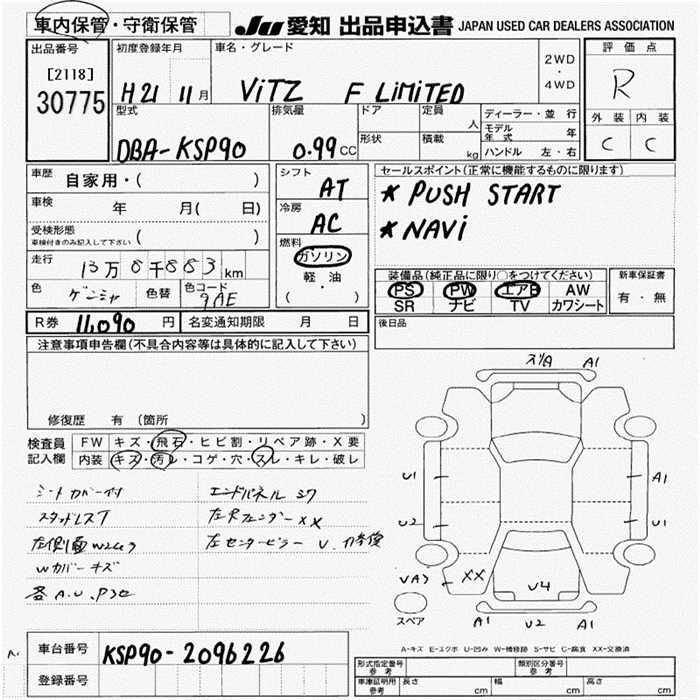 車内保管・守衛保管
JU 愛知 出品申込書 JAPAN USED CAR DEALERS ASSOCIATION
出品番号
[2118]
30775
初度登録年月
H21 11月
車名・グレード
ViTZ F LiMiTED
2WD
・
4WD
評価点
R
外装 内装
C C
型式
DBA-KSP90
排気量
0.99 CC
ドア
形状
定員
人
積載
kg
ディーラー・並行
モデル年式 年
ハンドル 左・右
車歴 自家用・( )
車検 年 月( 日)
受検形態
車検付きのみ記入して下さい ( )
走行 13万8千883km
色 色替 色コード
9AE
シフト
AT
冷房
AC
燃料
ガソリン
軽・油
( )
セールスポイント(正常に機能するものに限ります)
* PUSH START
* NAVi
装備品(純正品に限り○をつけてください)
PS PW エアB AW
SR ナビ TV カワシート
新車保証書
有・無
R券 11,090 円
名変通知期限 月 日
後日品
注意事項申告欄(不具合内容等は具体的に記入して下さい)
修復歴 有 (箇所 )
検査員記入欄
FW キズ・飛石・ヒビ割・リペア跡・X要
内装 キズ・汚レ・コゲ・穴・スレ・キレ・破レ
シートカバー付
スタッドレスT
Wカバーキズ
各A.U.P3Z
エンドパネル
左Fフェンダーxx
左センターピラー U.
A1
U1 A1
U2 U1
VA3 XX U4
A1 U2 A1
スペア
A-キズ E-エクボ U-凹み W-補修跡 S-サビ C-腐食 XX-交換済
車台番号 KSP90-2096226
登録番号
形式指定番号
参考
類別区分番号
参考
車庫証明用
参考
長さ cm
幅 cm
高さ cm